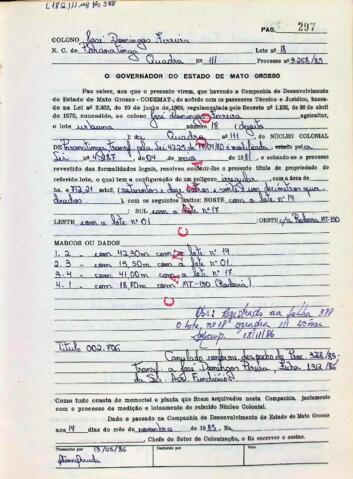 L 182/11 Mg Pg 388
PAG. 297
COLONO José Domingos Ferreira
N. C. de Paranatinga Lote nº 18
Quadra nº 111 Processo nº 3268/85
O GOVERNADOR DO ESTADO DE MATO GROSSO
Faz saber, aos que o presente virem, que havendo a Companhia de Desenvolvimento
do Estado de Mato Grosso - CODEMAT-, de acordo com os pareceres Técnico e Jurídico, basea-
do na Lei nº 2.933, de 19 de junho de 1969, regulamentada pelo Decreto nº 1.138, de 30 de abril
de 1970, concedido, ao colono José Domingos Ferreira agricultor,
o lote urbano número 18
da Quadra nº 111, DO NÚCLEO COLONIAL
DE Paranatinga Transf. pela Lei 4225 modificada pela
Lei nº de 04 de de 1981, e achando-se o processo
revestido das formalidades legais, resolveu outorgar-lhe o presente título de propriedade do
referido lote, o qual tem a configuração de um polígono irregular com a área de
hs. e 712,21 mts. (setecentos e doze metros e vinte e um decímetros qua
drados) com os seguintes limites: NORTE: com o lote nº 19
; SUL com o lote nº 17
LESTE com o lote nº 01 ; OESTE c/a Rodovia MT-130
CANCELADO
MARCOS OU DADOS
1. 2 - com 42,30m com lote nº 19
2. 3 - com 15,50m com lote nº 01
3 - 4 - com 41,00m com lote nº 17
4 - 1 - com 18,70m com MT-130 (Rodovia)
Obs: Registrado na folha 388
O lote nº 18 quadra 111
13/11/86
Título 002.706
Cancelado conforme despacho do Proc. 3268/85
Transf. a José Domingos Ferreira, Ficha 1912/86
Como tudo consta do memorial e planta que ficam arquivados nesta Companhia, juntamente
com o processo de medição e loteamento do referido Núcleo Colonial.
Dado e passado na Companhia de Desenvolvimento do Estado de Mato Grosso
aos 19 dias do mês de novembro de 1985. Eu,
, Chefe do Setor de Colonização, o fiz escrever e assino.
Transcrito por 13/05/86 Conferido por Visto